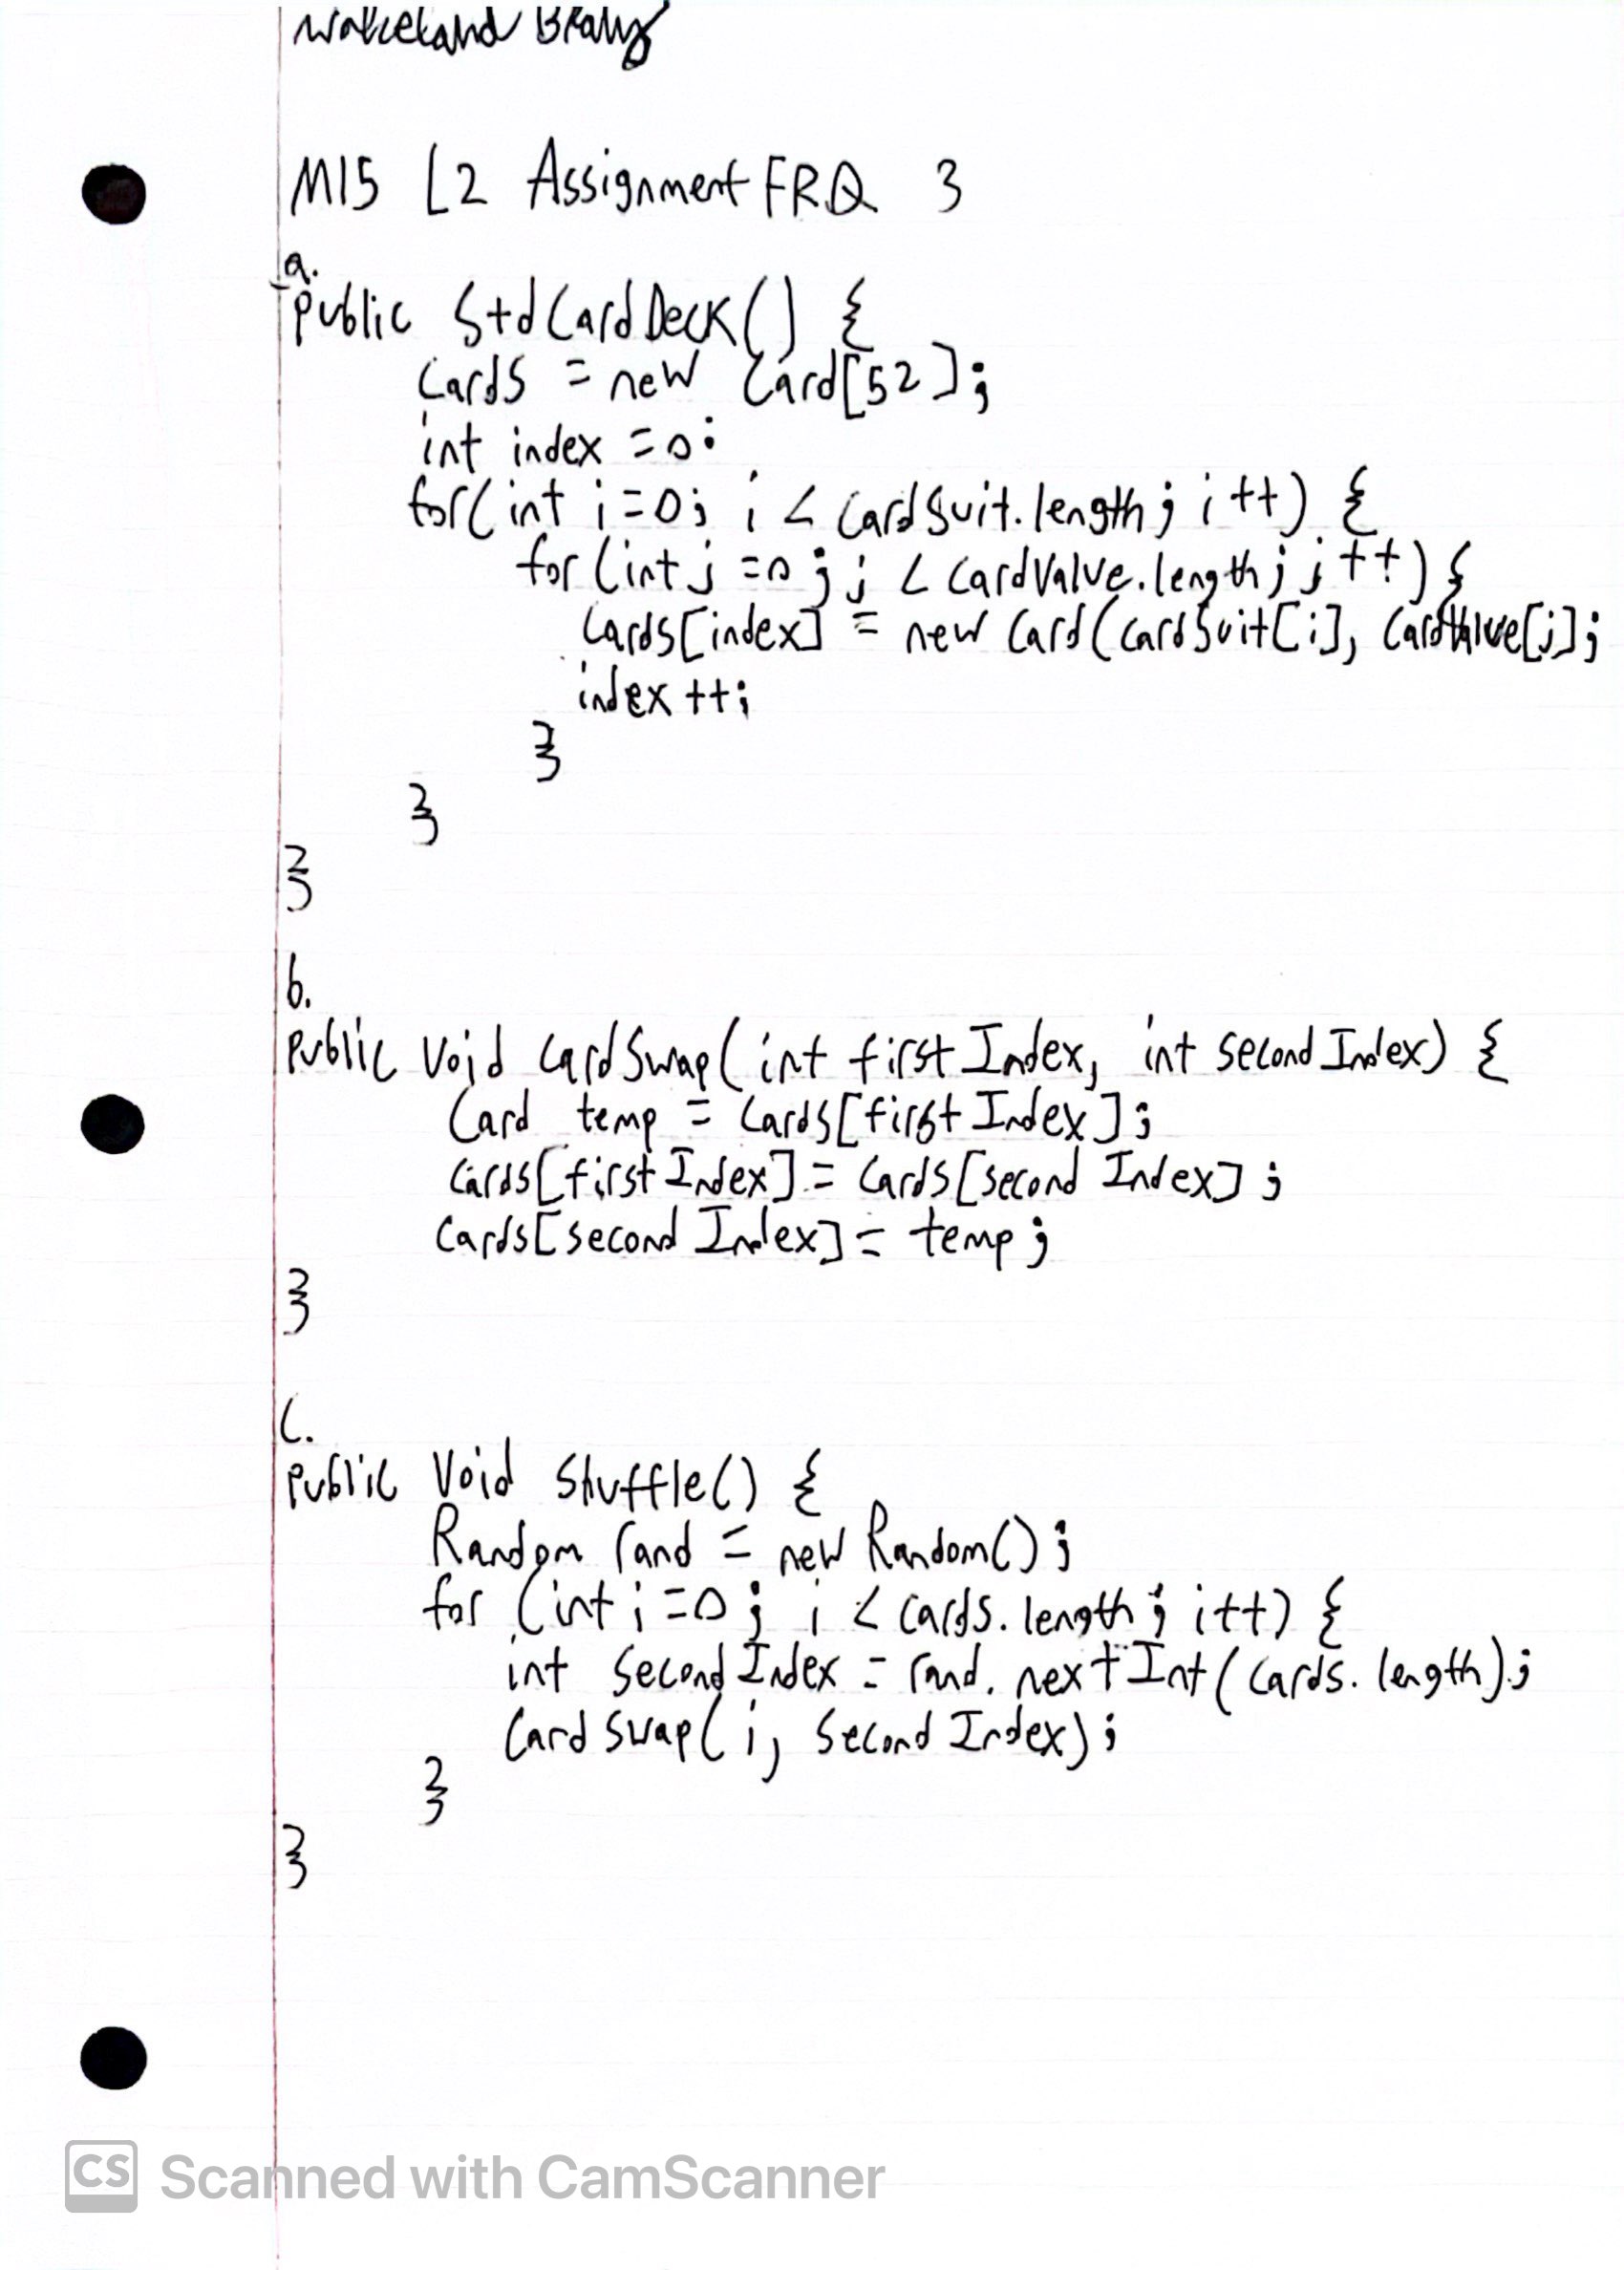 M15 L2 Assignment FRQ 3
a.
public StdCardDeck() {
cards = new Card[52];
int index = 0;
for(int i=0; i < cardSuit.length; i++) {
for(int j=0; j < cardValue.length; j++) {
cards[index] = new Card(cardSuit[i], cardValue[j];
index++;
}
}
}
b.
public void cardSwap(int firstIndex, int secondIndex) {
Card temp = cards[firstIndex];
cards[firstIndex] = cards[secondIndex];
cards[secondIndex] = temp;
}
c.
public void shuffle() {
Random rand = new Random();
for (int i=0; i < cards.length; i++) {
int secondIndex = rand.nextInt(cards.length);
cardSwap(i, secondIndex);
}
}
CS Scanned with CamScanner